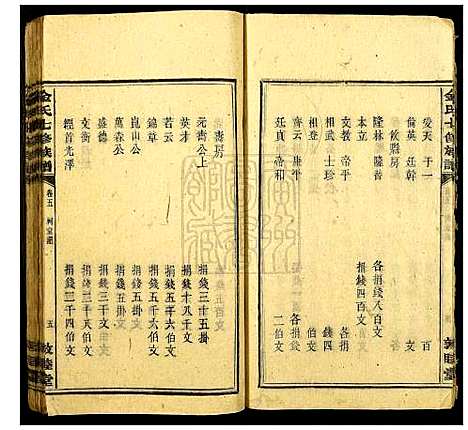 金氏七修族譜
愛天 于一 百
英廷 廷幹 文
攸縣房
隆林 隆普 各捐錢八百文
本立 捐錢四百文
文教 帝平 各捐
相武 士珍 錢四
相登 伯文
齊云 康平 各捐
廷真 廷和 二伯文
敦睦堂
壽房
元壽公上 捐錢三十五掛
英才 捐錢十八掛
若云 捐錢五千六伯文
錦章 捐錢五千文
崑山公 捐錢五掛
萬春公 捐錢五掛
盛德 捐錢三千文
文衡 捐錢三千八伯文
經首光澤 捐錢二千四伯文
金氏七修族譜
卷五 祠堂譜
五
敦睦堂